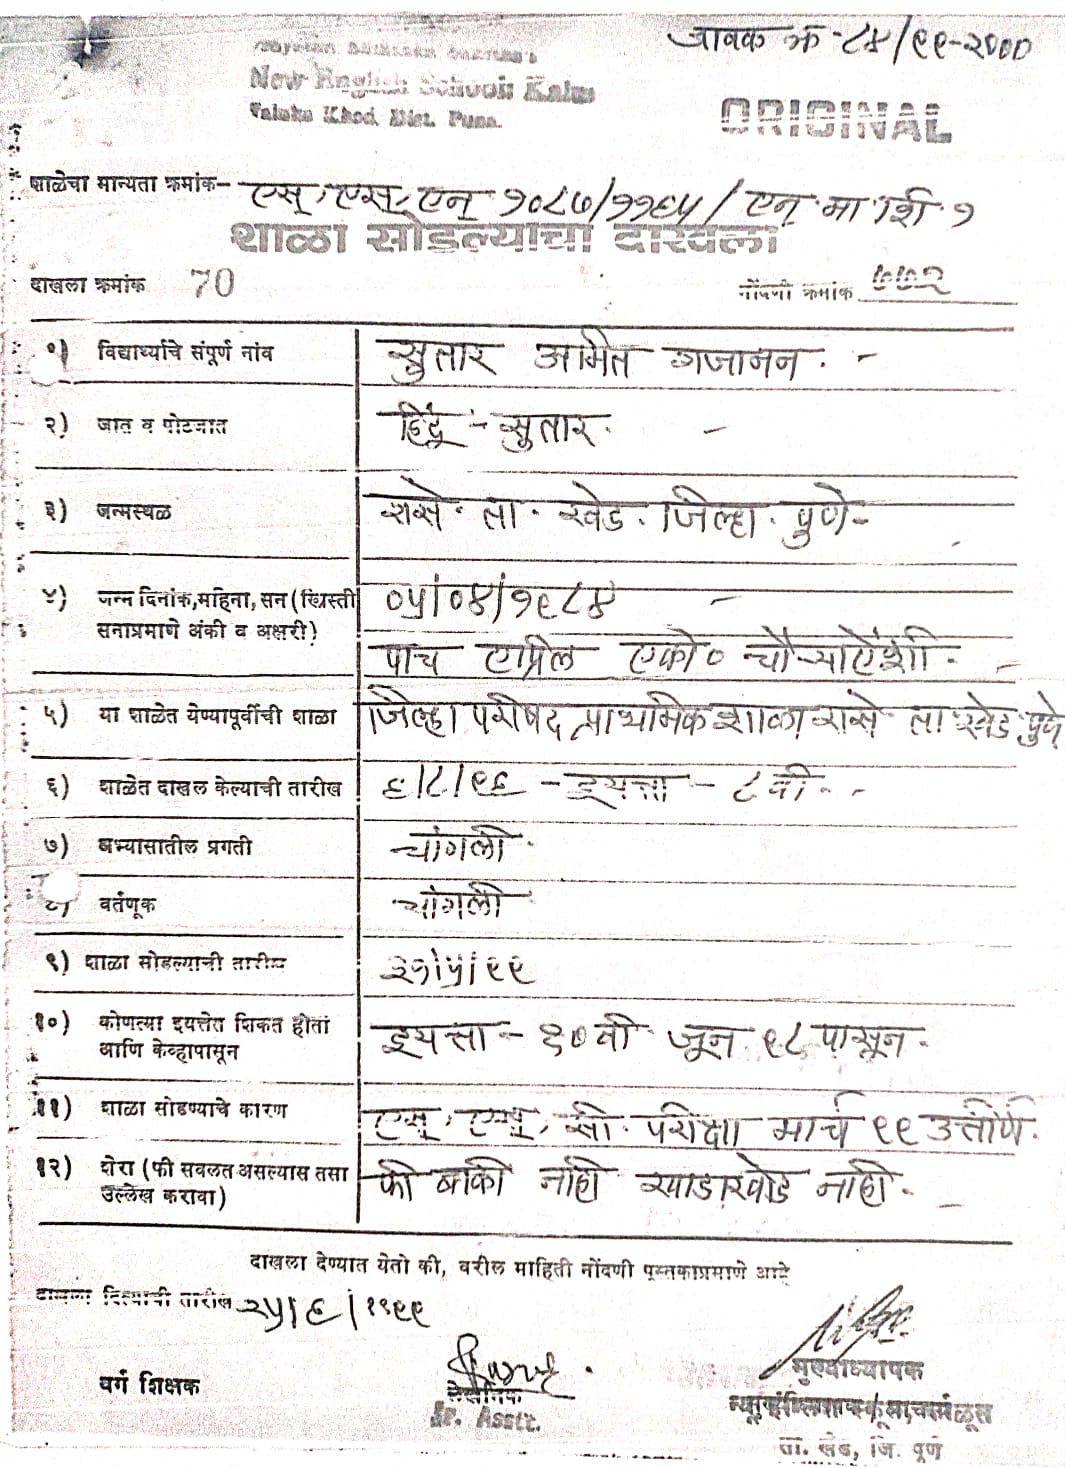 जावक क्र-८४/९९-२०००
New English School Kalus
Taluka Khed, Dist. Pune.
ORIGINAL
शाळेचा मान्यता क्रमांक- एस्.एस्.एन् १०८७/११६५/एन् मा शि १
शाळा सोडल्याचा दाखला
दाखला क्रमांक 70 नोंदणी क्रमांक ७७२
१) विद्यार्थ्याचे संपूर्ण नांव सुतार अमित गजानन. -
२) जात व पोटजात हिंदू - सुतार. -
३) जन्मस्थळ रासे. ता. खेड. जिल्हा. पुणे-
४) जन्म दिनांक,महिना,सन(ख्रिस्ती ०५/०४/१९८४ -
सनाप्रमाणे अंकी व अक्षरी) पाच एप्रिल एको० चौऱ्याऐंशी. -
५) या शाळेत येण्यापूर्वीची शाळा जिल्हा परीषद प्राथमिक शाळा रासे ता खेड पुणे
६) शाळेत दाखल केल्याची तारीख ६/८/९६ - इयत्ता - ८ वी. -
७) अभ्यासातील प्रगती चांगली.
८) वर्तणूक चांगली
९) शाळा सोडल्याची तारीख ३१/५/९९
१०) कोणत्या इयत्तेत शिकत होता
आणि केव्हापासून इयत्ता - १० वी जून ९८ पासून.
११) शाळा सोडण्याचे कारण एस्. एस्. सी. परीक्षा मार्च ९९ उत्तीर्ण.
१२) शेरा (फी सवलत असल्यास तसा फी बाकी नाही खाडाखोड नाही. -
उल्लेख करावा)
दाखला देण्यात येतो की, वरील माहिती नोंदणी पुस्तकाप्रमाणे आहे
दाखला दिल्याची तारीख २५/६/१९९९
वर्ग शिक्षक लेखनिक मुख्याध्यापक
Jr. Asstt.
ता. खेड, जि. पुणे